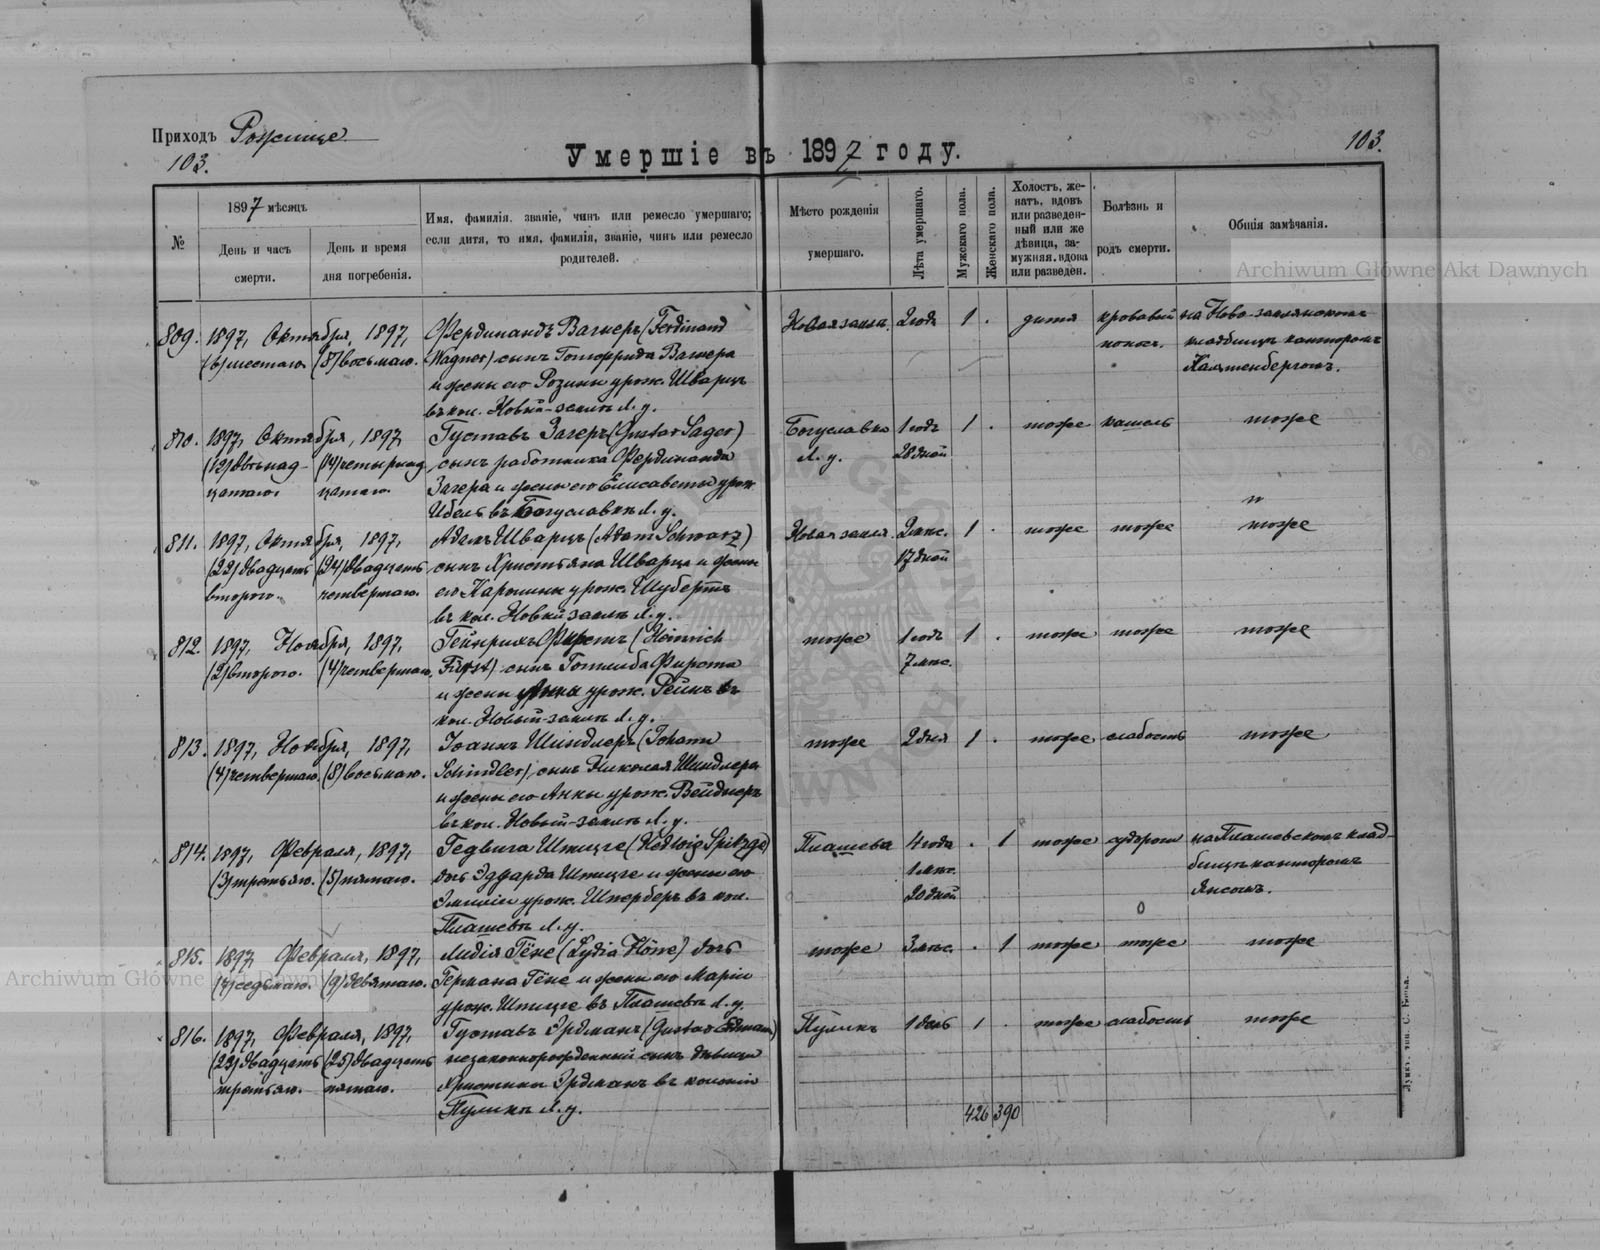 Приходъ Рожище
103.
103.
Умершіе въ 1897 году.
№
1897 мѣсяцъ
День и часъ смерти.
День и время дня погребенія.
Имя, фамилія, званіе, чинъ или ремесло умершаго; если дитя, то имя, фамилія, званіе, чинъ или ремесло родителей.
Мѣсто рожденія умершаго.
Лѣта умершаго.
Мужскаго пола.
Женскаго пола.
Холостъ, женатъ, вдовъ или разведенный или же дѣвица, замужняя, вдова или разведен.
Болѣзнь и родъ смерти.
Общія замѣчанія.
Archiwum Główne Akt Dawnych
809. 1897, Октября, 1897, Фердинандъ Вагнеръ (Ferdinand Новая земля 2 года 1 . дитя кровавый на Ново-земляномъ
(6) шестаго (8) восьмаго. Wagner) сынъ Готфрида Вагнера поносъ. кладбищѣ канторомъ
и жены его Розины урож. Шварцъ
въ кол. Новый-землѣ Л. у.
810. 1897, Октября, 1897, Густавъ Загеръ (Gustav Sager) Богуславка 1 годъ 1 . тоже кашель тоже
(12) двѣнад- (14) четырнад сынъ работника Фердинанда Л. у. 28 дней
цатаго. цатаго. Загера и жены его Елисаветы урож.
въ Богуславкѣ Л. у.
811. 1897, Октября, 1897, Адамъ Шварцъ (Adam Schwarz) Новая земля 2 мѣс. 1 . тоже тоже тоже
(22) двадцать (24) двадцать сынъ Христьяна Шварца и жены 17 дней
втораго. четвертаго. его Каролины урож. Шубертъ
въ кол. Новый землѣ Л. у.
812. 1897, Ноября, 1897, Гейнрихъ Фирстъ (Heinrich тоже 1 годъ 1 . тоже тоже тоже
(2) втораго. (4) четвертаго. Fürst) сынъ Готлиба Фирста 7 мѣс.
и жены Анны урож. Рейнъ въ
кол. Новый-землѣ Л. у.
813. 1897, Ноября, 1897, Іоаннъ Шиндлеръ (Johann тоже 2 дня 1 . тоже слабость тоже
(4) четвертаго. (8) восьмаго. Schindler) сынъ Николая Шиндлера
и жены его Анны урож. Вейднеръ
въ кол. Новый-землѣ Л. у.
814. 1897, Февраля, 1897, Гедвига Шпицге (Hedwig Spitzge) Плашева 4 года . 1 тоже судороги на Плашевскомъ клад-
(3) третьяго. (5) пятаго. дочь Эдуарда Шпицге и жены его 1 мѣс. бищѣ канторомъ
Эмиліи урож. Шперберъ въ кол. 20 дней Янсомъ.
Плашевѣ Л. у.
815. 1897, Февраля, 1897, Лидія Гёне (Lydia Höne) дочь тоже 3 мѣс. . 1 тоже тоже тоже
(7) седьмаго. (9) девятаго. Германа Гёне и жены его Маріи
урож. Шпицге въ Плашевѣ Л. у.
816. 1897, Февраля, 1897, Густавъ Эрдманъ (Gustav Erdmann) Пулинъ 1 день 1 . тоже слабость тоже
(23) двадцать (25) двадцать незаконнорожденный сынъ дѣвицы
третьяго. пятаго. Христины Эрдманъ въ колоніи
Пулинѣ Л. у.
426 390
Archiwum Główne Akt Dawnych